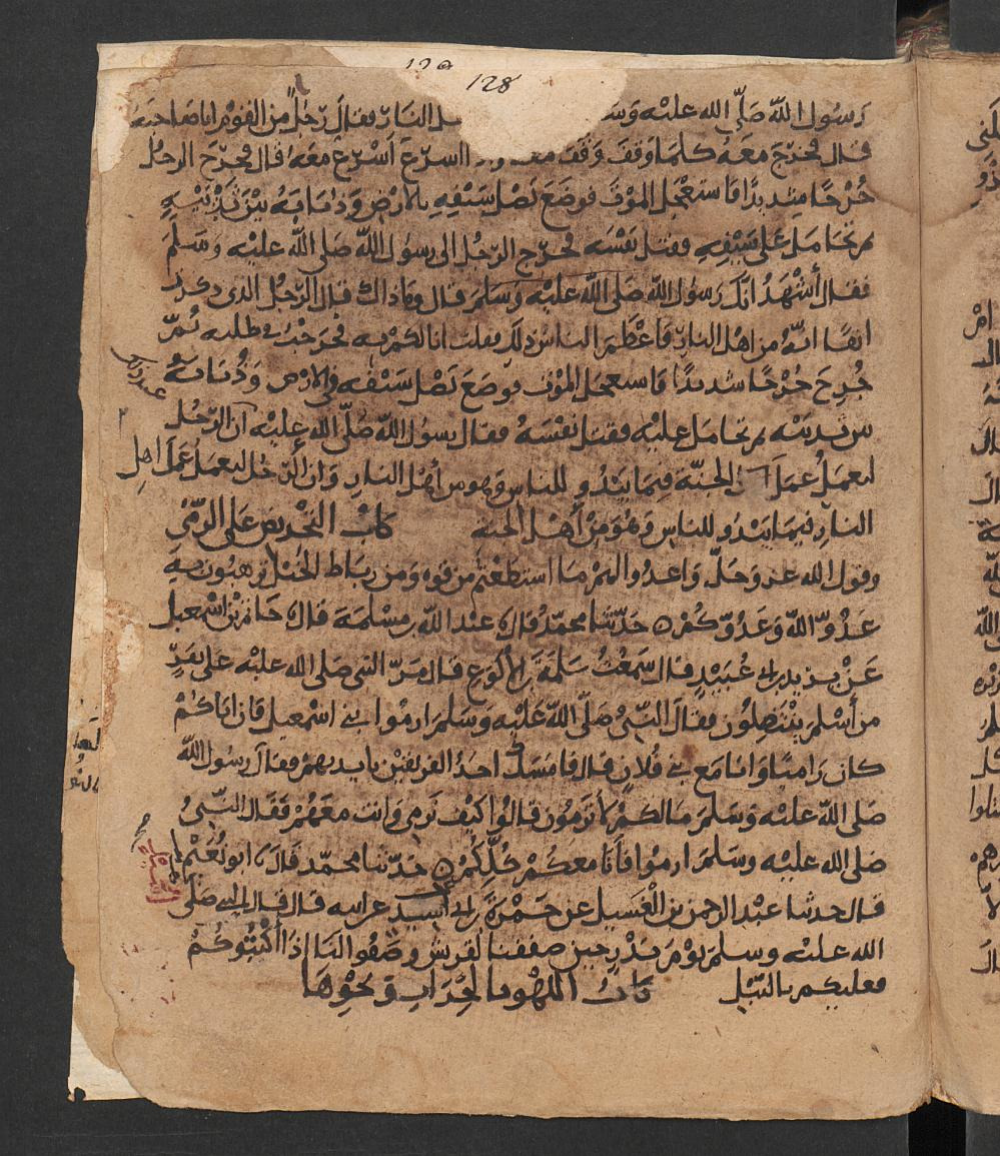 128
رسول الله صلى الله عليه وس ل النار فقال رجل من القوم انا صاحبه
قال فخرج معه كلما وقف وقف معه واذا اسرع اسرع معه قال فجرح الرجل
جرحا شديدا فاستعجل الموت فوضع نصل سيفه بالارض وذبابه بين ثدييه
ثم تحامل على سيفه فقتل نفسه فخرج الرجل الى رسول الله صلى الله عليه وسلم
فقال أشهد انك رسول الله صلى الله عليه وسلم قال وما ذاك قال الرجل الذى ذكرت
انفا انه من اهل النار فاعظم الناس ذلك فقلت انا لكم به فخرجت في طلبه ثم
جرح جرحا شديدا فاستعجل الموت فوضع نصل سيفه في الارض وذبابه
بين ثدييه ثم تحامل عليه فقتل نفسه فقال رسول الله صلى الله عليه ان الرجل
ليعمل عمل اهل الجنة فيما يبدو للناس وهو من أهل النار وان الرجل ليعمل عمل اهل
النار فيما يبدو للناس وهو من أهل الجنة باب التحريض على الرمي
وقول الله عز وجل واعدوا لهم ما استطعتم من قوة ومن رباط الخيل ترهبون به
عدو الله وعدوكم ه حدثنا محمد قال عبد الله بن مسلمة قال حاتم بن اسمعيل
عن يزيد بن ابي عبيد قال سمعت سلمة بن الاكوع قال مر النبي صلى الله عليه على نفر
من أسلم ينتضلون فقال النبي صلى الله عليه وسلم ارموا بني اسمعيل فان اباكم
كان راميا وانا مع بني فلان قال فامسك احد الفريقين بايديهم فقال رسول الله
صلى الله عليه وسلم مالكم لا ترمون قالوا كيف نرمي وانت معهم فقال النبي
صلى الله عليه وسلم ارموا فأنا معكم كلكم ه حدثنا محمد قال ابو نعيم
قال حدثنا عبد الرحمن بن الغسيل عن حمزة بن ابي أسيد عن ابيه قال قال النبي صلى
الله عليه وسلم يوم بدر حين صففنا لقريش وصفوا لنا اذا أكثبوكم
فعليكم بالنبل باب اللهو بالحراب ونحوها